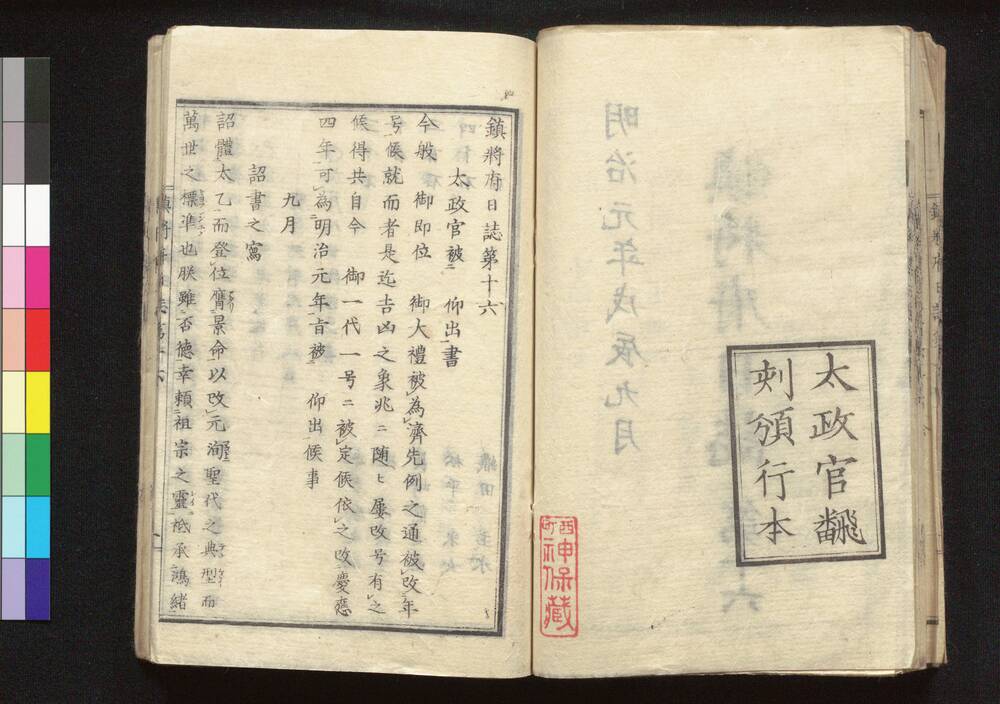 太政官飜
刻頒行本
西町
神保藏
鎮將府日誌第十六
太政官被二 仰出一書
今般 御即位 御大禮被レ為レ濟先例之通被レ改二年
号一候就而者是迄吉凶之象兆ニ随ヒ屡改号有レ之
候得共自今 御一代一号ニ被レ定候依レ之改二慶應
四年一可レ為二明治元年一旨被二 仰出一候事
九月
詔書之寫
詔體二太乙一而登レ位膺二景命一以改レ元洵聖代之典型而
萬世之標準也朕雖二否德一幸賴二祖宗之靈一祗承二鴻緒一